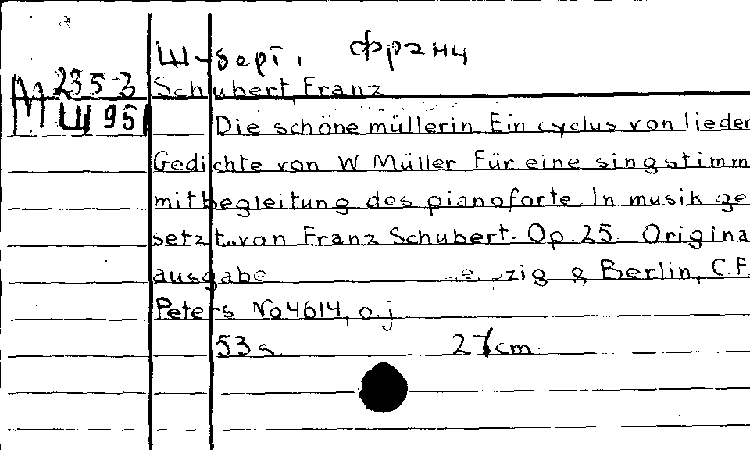 Ш-берт, Франц
М 235-3 Schubert, Franz
Ш 95 Die schöne müllerin Ein cyclus von lieder
Gedichte von W Müller Für eine singstimm
mitbegleitung des pianoforte In musik ge
setzt von Franz Schubert. Op. 25. Origina
ausgabe zig & Berlin, C.F.
Peters No 4614, o.j
53 s. 27 cm.